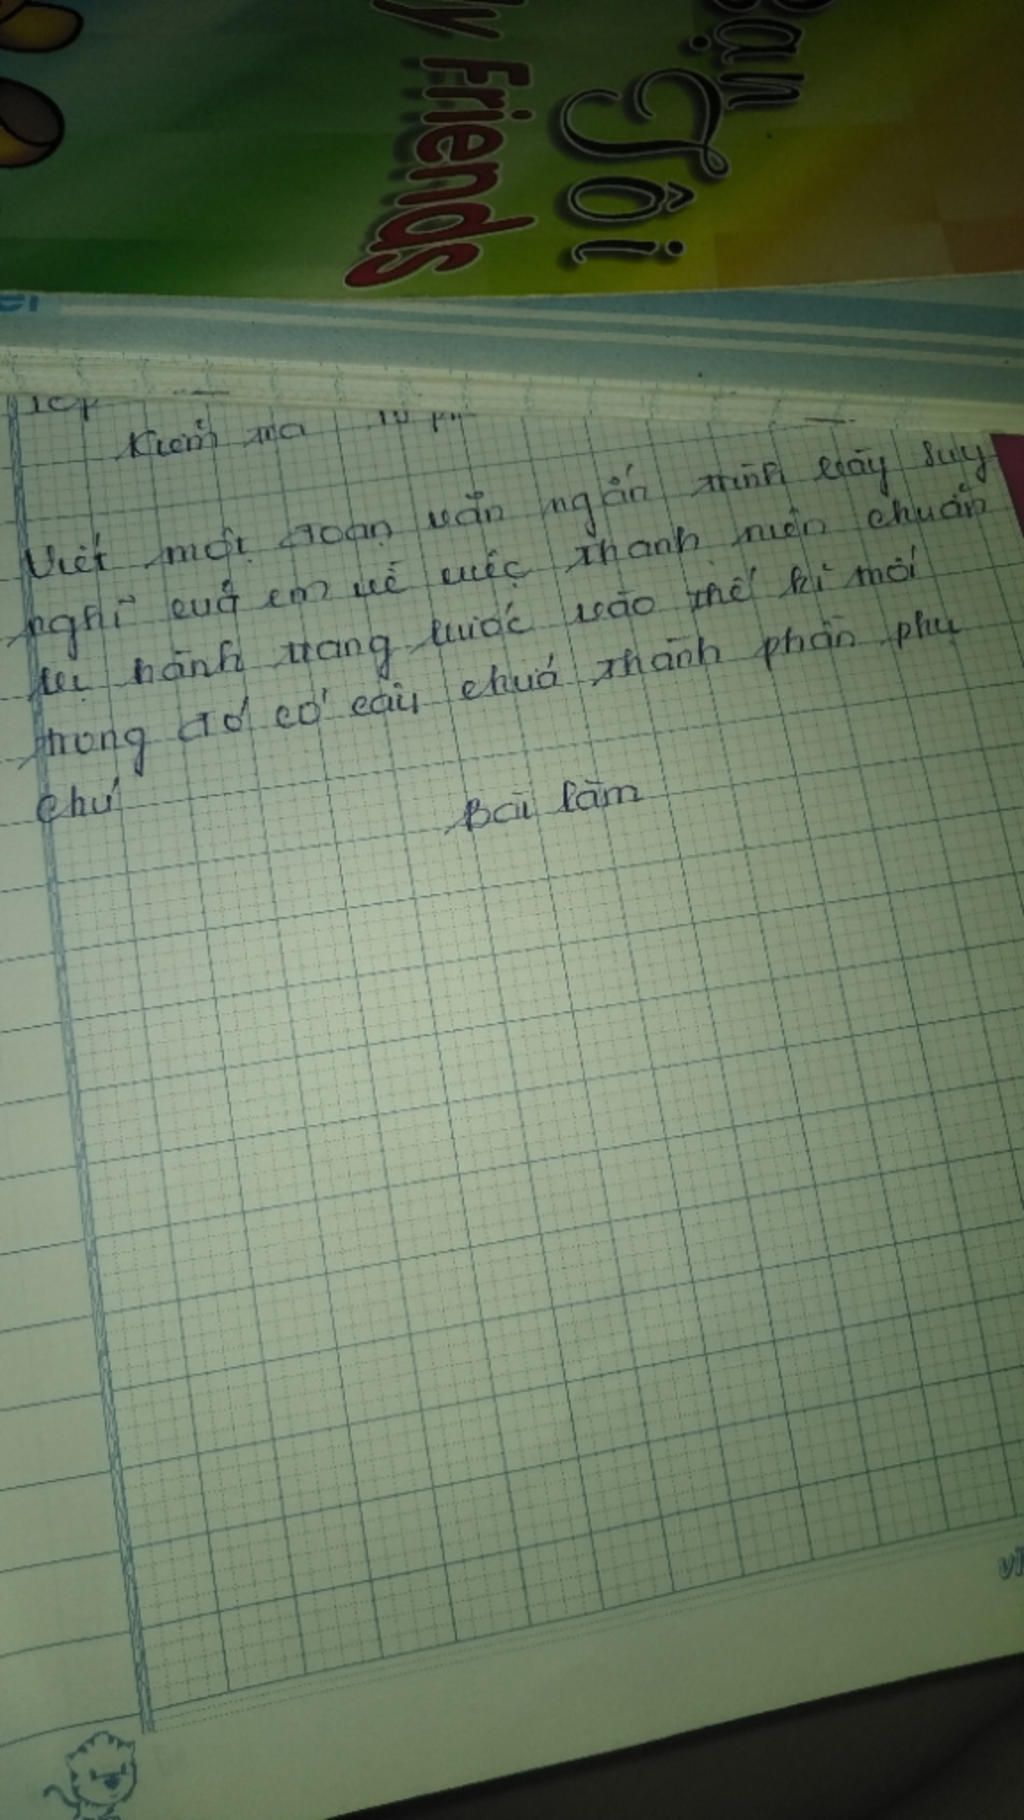 Bạn
Tôi
My Friends
Kiểm tra
Viết một đoạn văn ngắn trình bày suy
nghĩ của em về việc thanh niên chuẩn
bị hành trang bước vào thế kỉ mới
trong đó có câu chứa thành phần phụ
chú
Bài làm